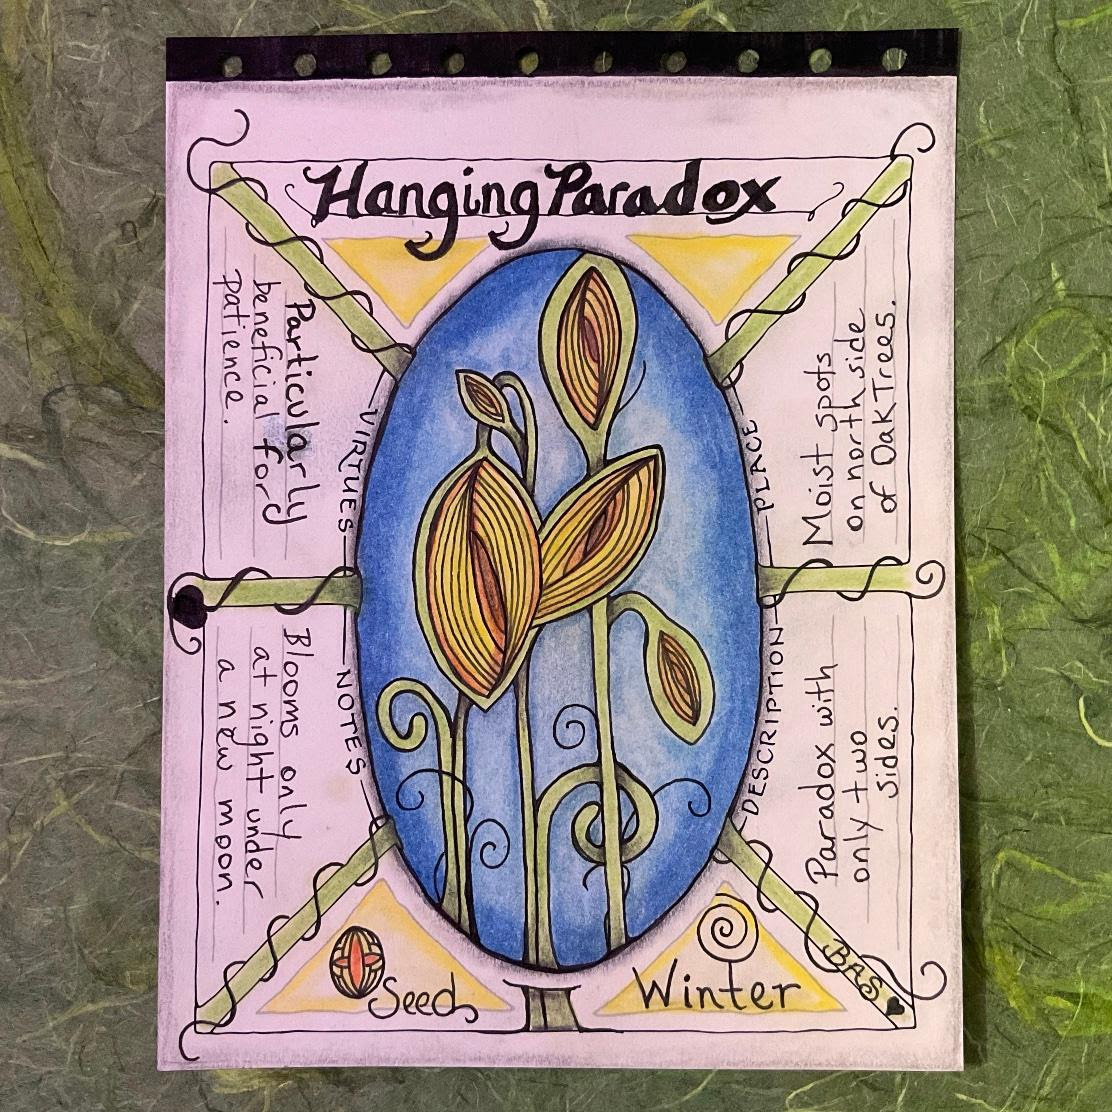 Hanging Paradox
VIRTUES
Particularly
beneficial for
patience.
PLACE
Moist spots
on north side
of Oak Trees.
NOTES
Blooms only
at night under
a new moon.
DESCRIPTION
Paradox with
only two
sides.
Seed
Winter
BAS